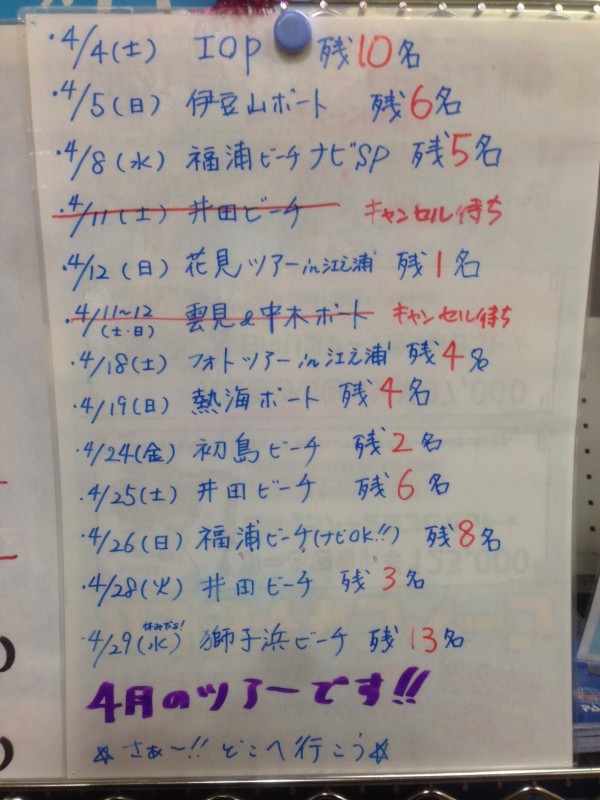 ・4/4(土) IOP 残10名
・4/5(日) 伊豆山ボート 残6名
・4/8(水) 福浦ビーチナビSP 残5名
・4/11(土) 井田ビーチ キャンセル待ち
・4/12(日) 花見ツアーin江之浦 残1名
・4/11~12(土・日) 雲見&中木ボート キャンセル待ち
・4/18(土) フォトツアーin江之浦 残4名
・4/19(日) 熱海ボート 残4名
・4/24(金) 初島ビーチ 残2名
・4/25(土) 井田ビーチ 残6名
・4/26(日) 福浦ビーチ(ナビOK!!) 残8名
・4/28(火) 井田ビーチ 残3名
休みだよ!
・4/29(水) 獅子浜ビーチ 残13名
4月のツアーです!!
☆さぁ~!!どこへ行こう☆